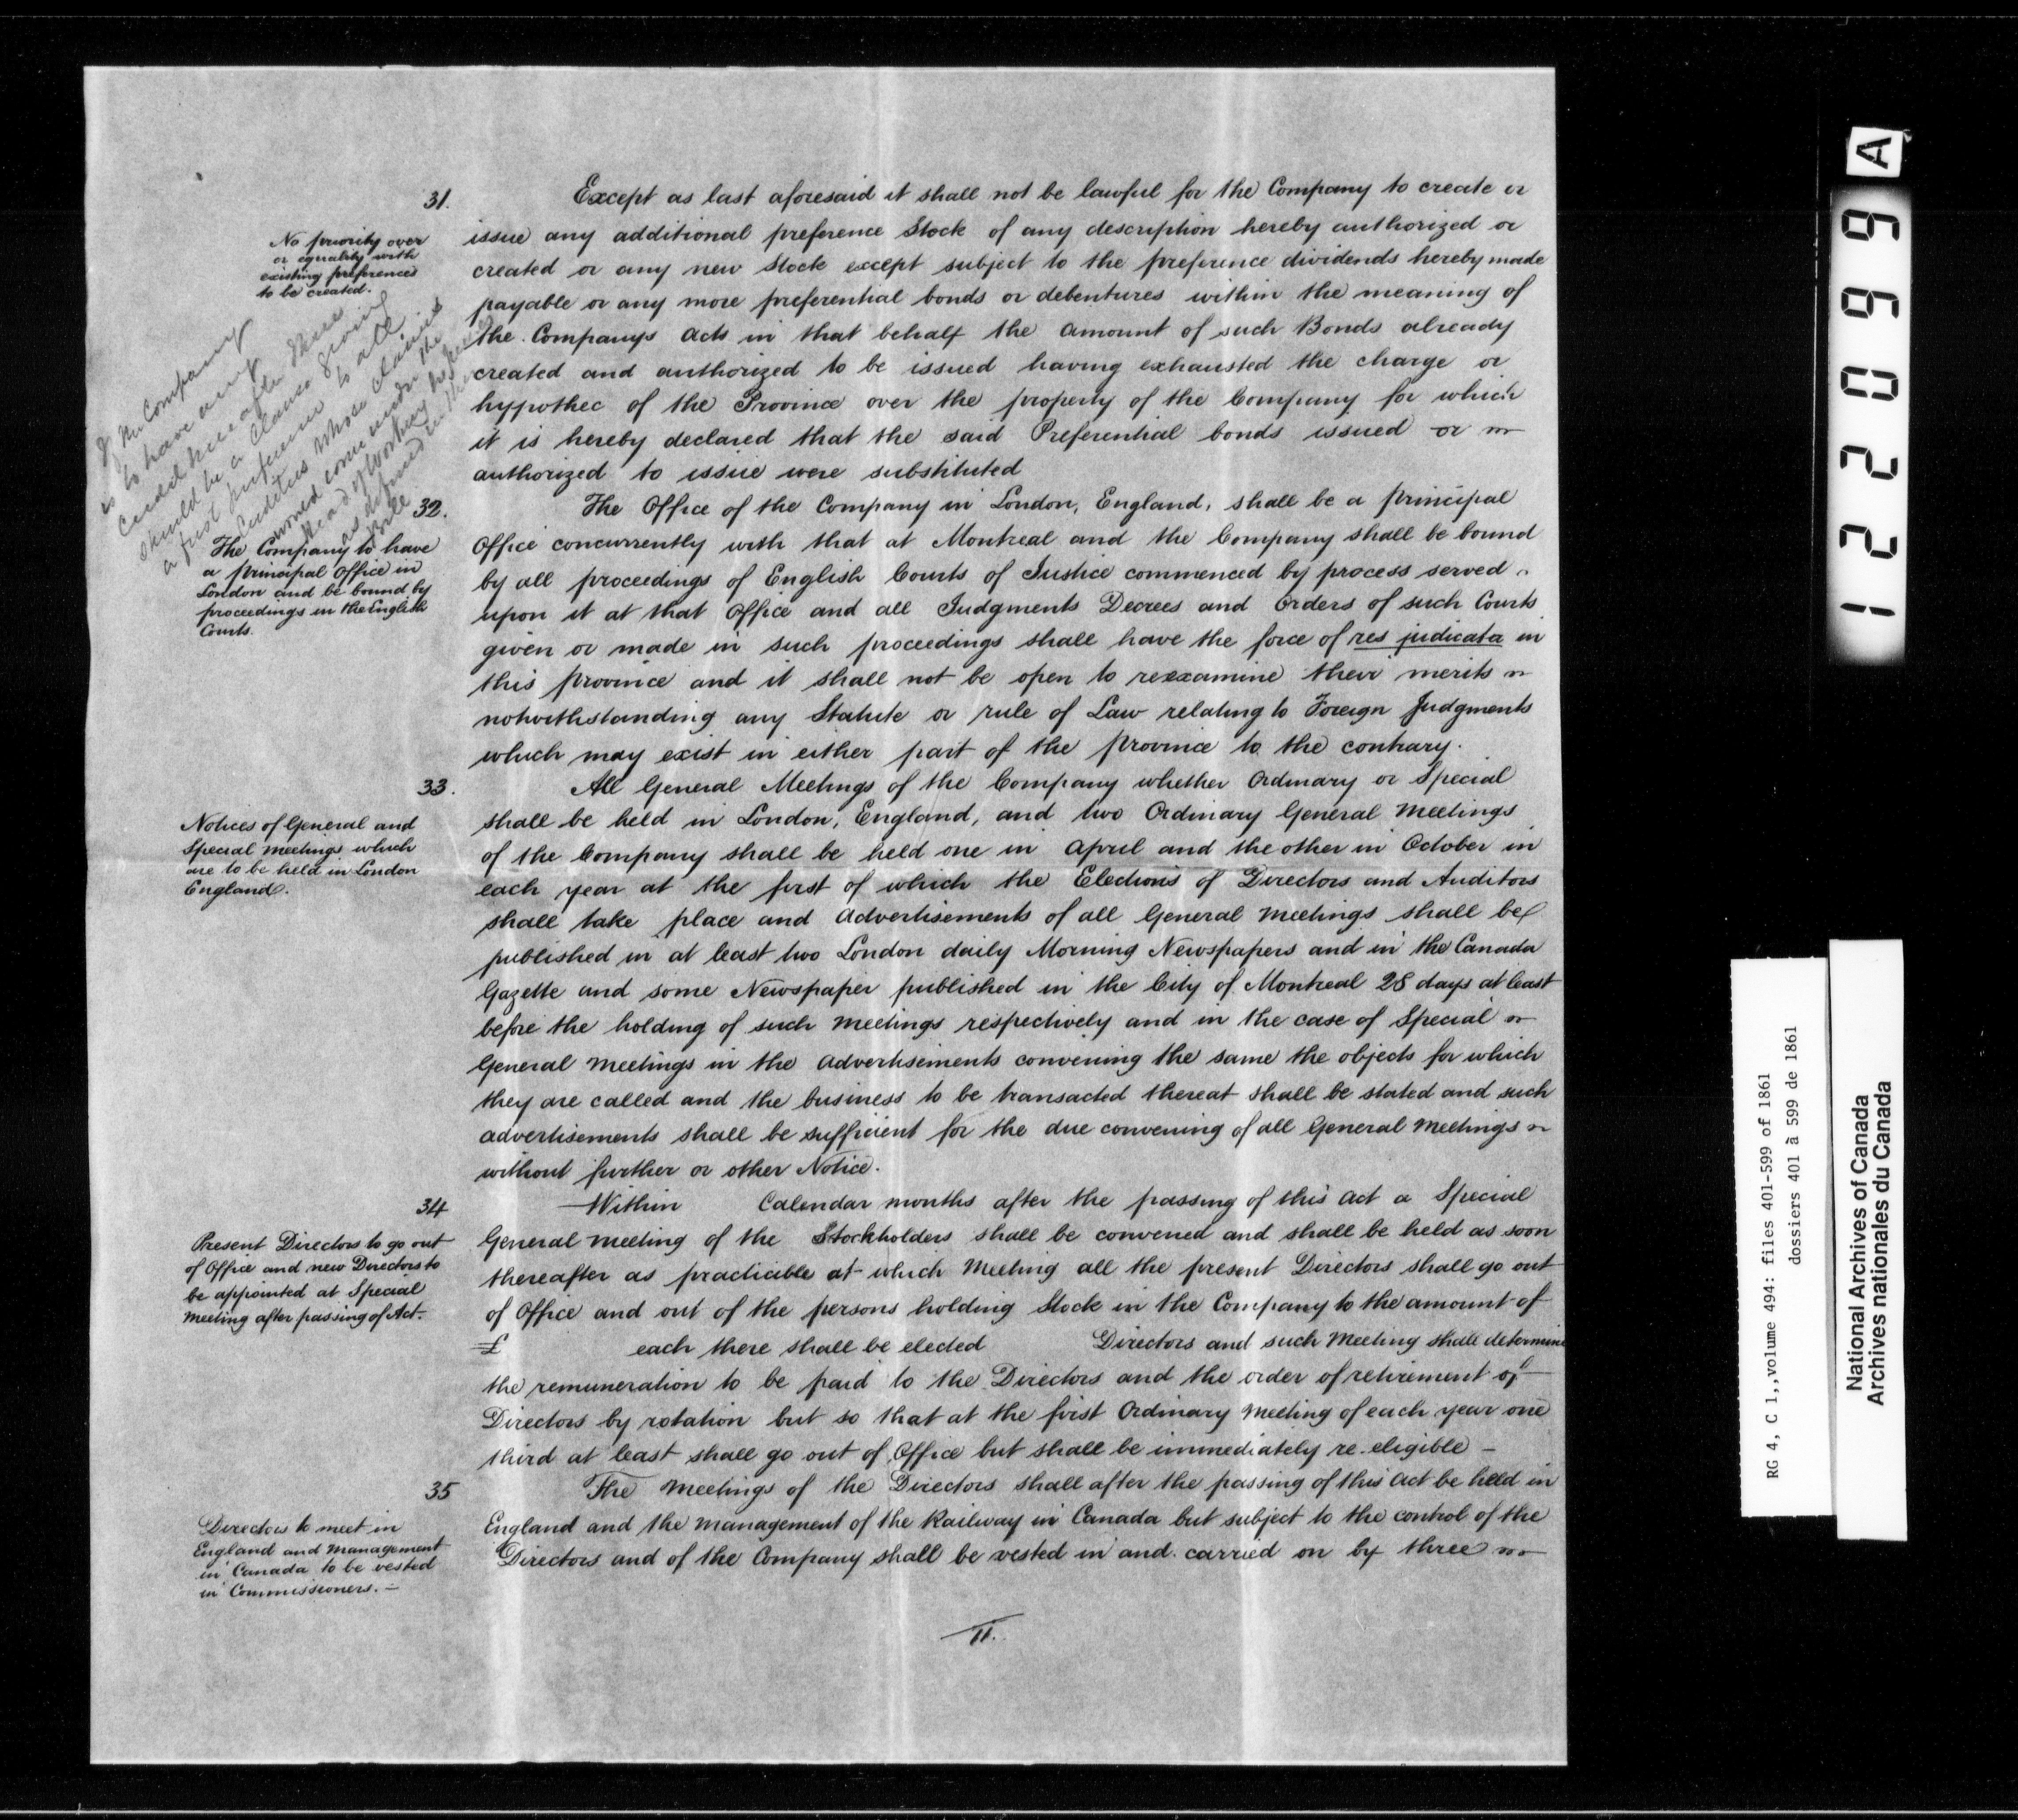 31.
Except as last aforesaid it shall not be lawful for the Company to create or
issue any additional preference Stock of any description hereby authorized or
created or any new Stock except subject to the preference dividends hereby made
payable or any more preferential bonds or debentures within the meaning of
the Companys Acts in that behalf the amount of such Bonds already
created and authorized to be issued having exhausted the charge or
hypothec of the Province over the property of the Company for which
it is hereby declared that the said Preferential bonds issued or
authorized to issue were substituted
No priority over
or equality with
existing preferences
to be created.
If the Company
is to have any
credit hereafter there
should be a clause giving
a first preference to all
creditors whose claims
come under the
head of Working
as defined in the
Bill
32.
The Office of the Company in London, England, shall be a principal
Office concurrently with that at Montreal and the Company shall be bound
by all proceedings of English Courts of Justice commenced by process served
upon it at that Office and all Judgments Decrees and Orders of such Courts
given or made in such proceedings shall have the force of res judicata in
this province and it shall not be open to reexamine their merits
notwithstanding any Statute or rule of Law relating to Foreign Judgments
which may exist in either part of the province to the contrary.
The Company to have
a principal Office in
London and be bound by
proceedings in the English
Courts.
33.
All General Meetings of the Company whether Ordinary or Special
shall be held in London, England, and two Ordinary General Meetings
of the Company shall be held one in April and the other in October in
each year at the first of which the Elections of Directors and Auditors
shall take place and Advertisements of all General Meetings shall be
published in at least two London daily Morning Newspapers and in the Canada
Gazette and some Newspaper published in the City of Montreal 28 days at least
before the holding of such Meetings respectively and in the case of Special
General Meetings in the Advertisements convening the same the objects for which
they are called and the business to be transacted thereat shall be stated and such
advertisements shall be sufficient for the due convening of all General Meetings
without further or other Notice.
Notices of General and
Special Meetings which
are to be held in London
England.
34
Within Calendar months after the passing of this Act a Special
General Meeting of the Stockholders shall be convened and shall be held as soon
thereafter as practicable at which Meeting all the present Directors shall go out
of Office and out of the persons holding Stock in the Company to the amount of
£ each there shall be elected Directors and such Meeting shall determine
the remuneration to be paid to the Directors and the order of retirement of
Directors by rotation but so that at the first Ordinary Meeting of each year one
third at least shall go out of Office but shall be immediately re-eligible –
Present Directors to go out
of Office and new Directors to
be appointed at Special
Meeting after passing of Act.
35
The Meetings of the Directors shall after the passing of this Act be held in
England and the Management of the Railway in Canada but subject to the control of the
Directors and of the Company shall be vested in and carried on by three
Directors to meet in
England and Management
in Canada to be vested
in Commissioners. –
11.
122099 A
RG 4, C 1,,volume 494: files 401-599 of 1861
dossiers 401 à 599 de 1861
National Archives of Canada
Archives nationales du Canada